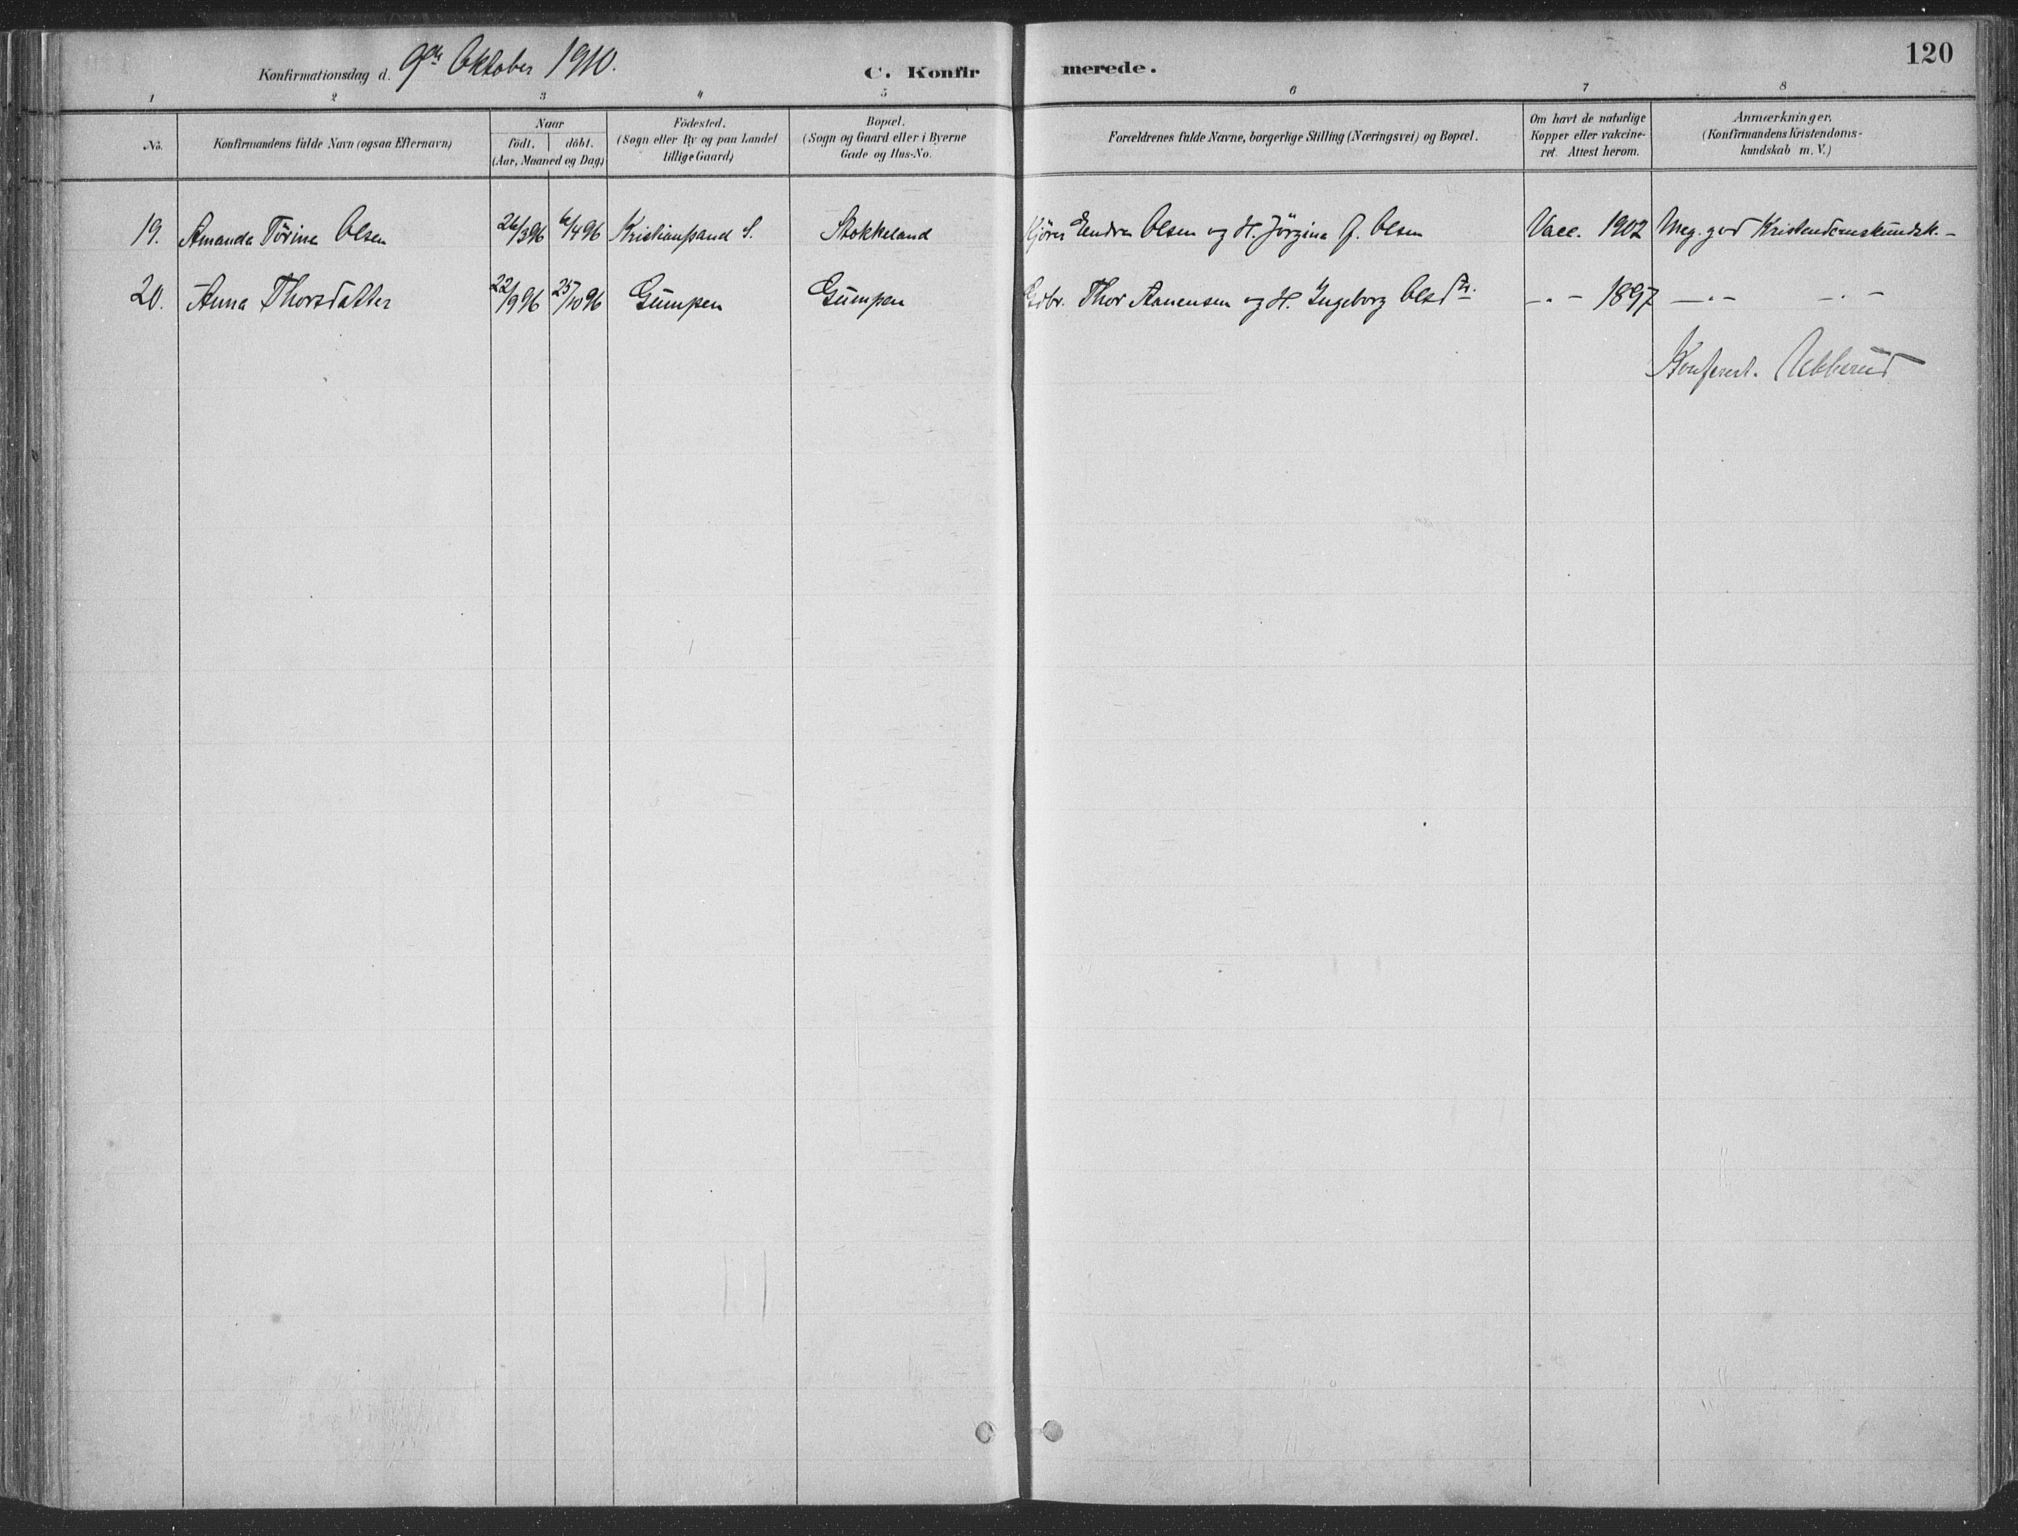 Konfirmationsdag d. 9de Oktober 1910.
C. Konfir merede. 120
1 2 3 4 5 6 7 8
No. Konfirmandens fulde Navn (ogsaa Efternavn) Naar födt. döbt. (Aar, Maaned og Dag) Födested. (Sogn eller By og paa Landet tillige Gaard) Bopæl. (Sogn og Gaard eller i Byerne Gade og Hus-No. Forældrenes fulde Navne, borgerlige Stilling (Næringsvei) og Bopæl. Om havt de naturlige Kopper eller vakcineret. Attest herom. Anmærkninger. (Konfirmandens Kristendomskundskab m. V.)
19. Amanda Törine Olsen 26/3 96 6/4 96 Kristianssand S. Stokkeland Kjörer Endre Olsen og H. Jörgine G. Olsen Vacc. 1902 Meg. god Kristendomskundsk. –
20. Anna Thorsdatter 22/9 96 25/10 96 Gumpen Gumpen Gdbr. Thor Aanensen og H. Ingeborg Olsdtr. –„– 1897 –„– –„–
Konferert.